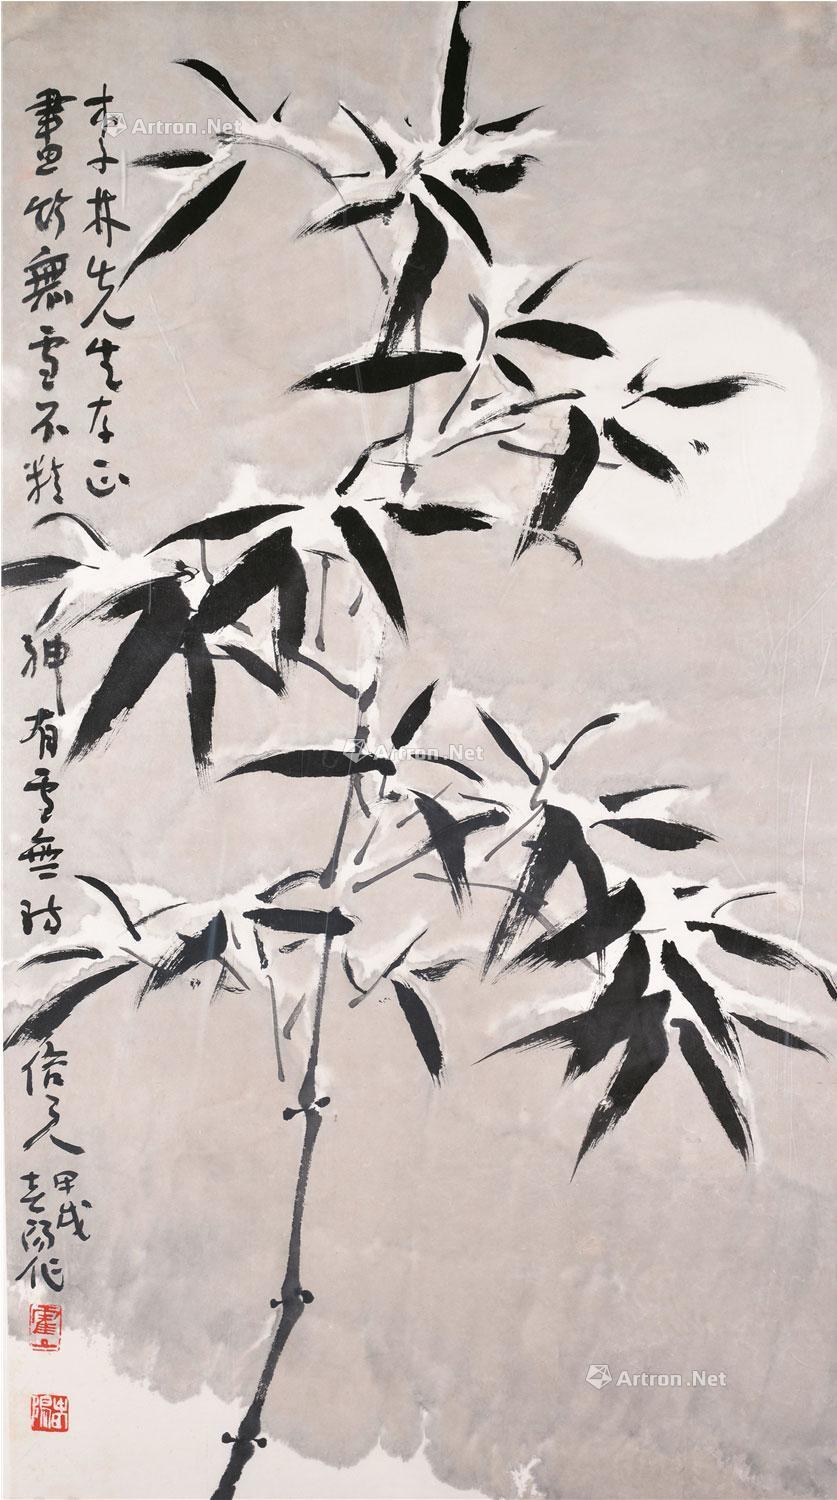 李林先生存正
畫竹無雪不精神有雪無詩俗了人
甲戌
春陽作
霍
春陽
Artron.Net
Artron.Net
Artron.Net